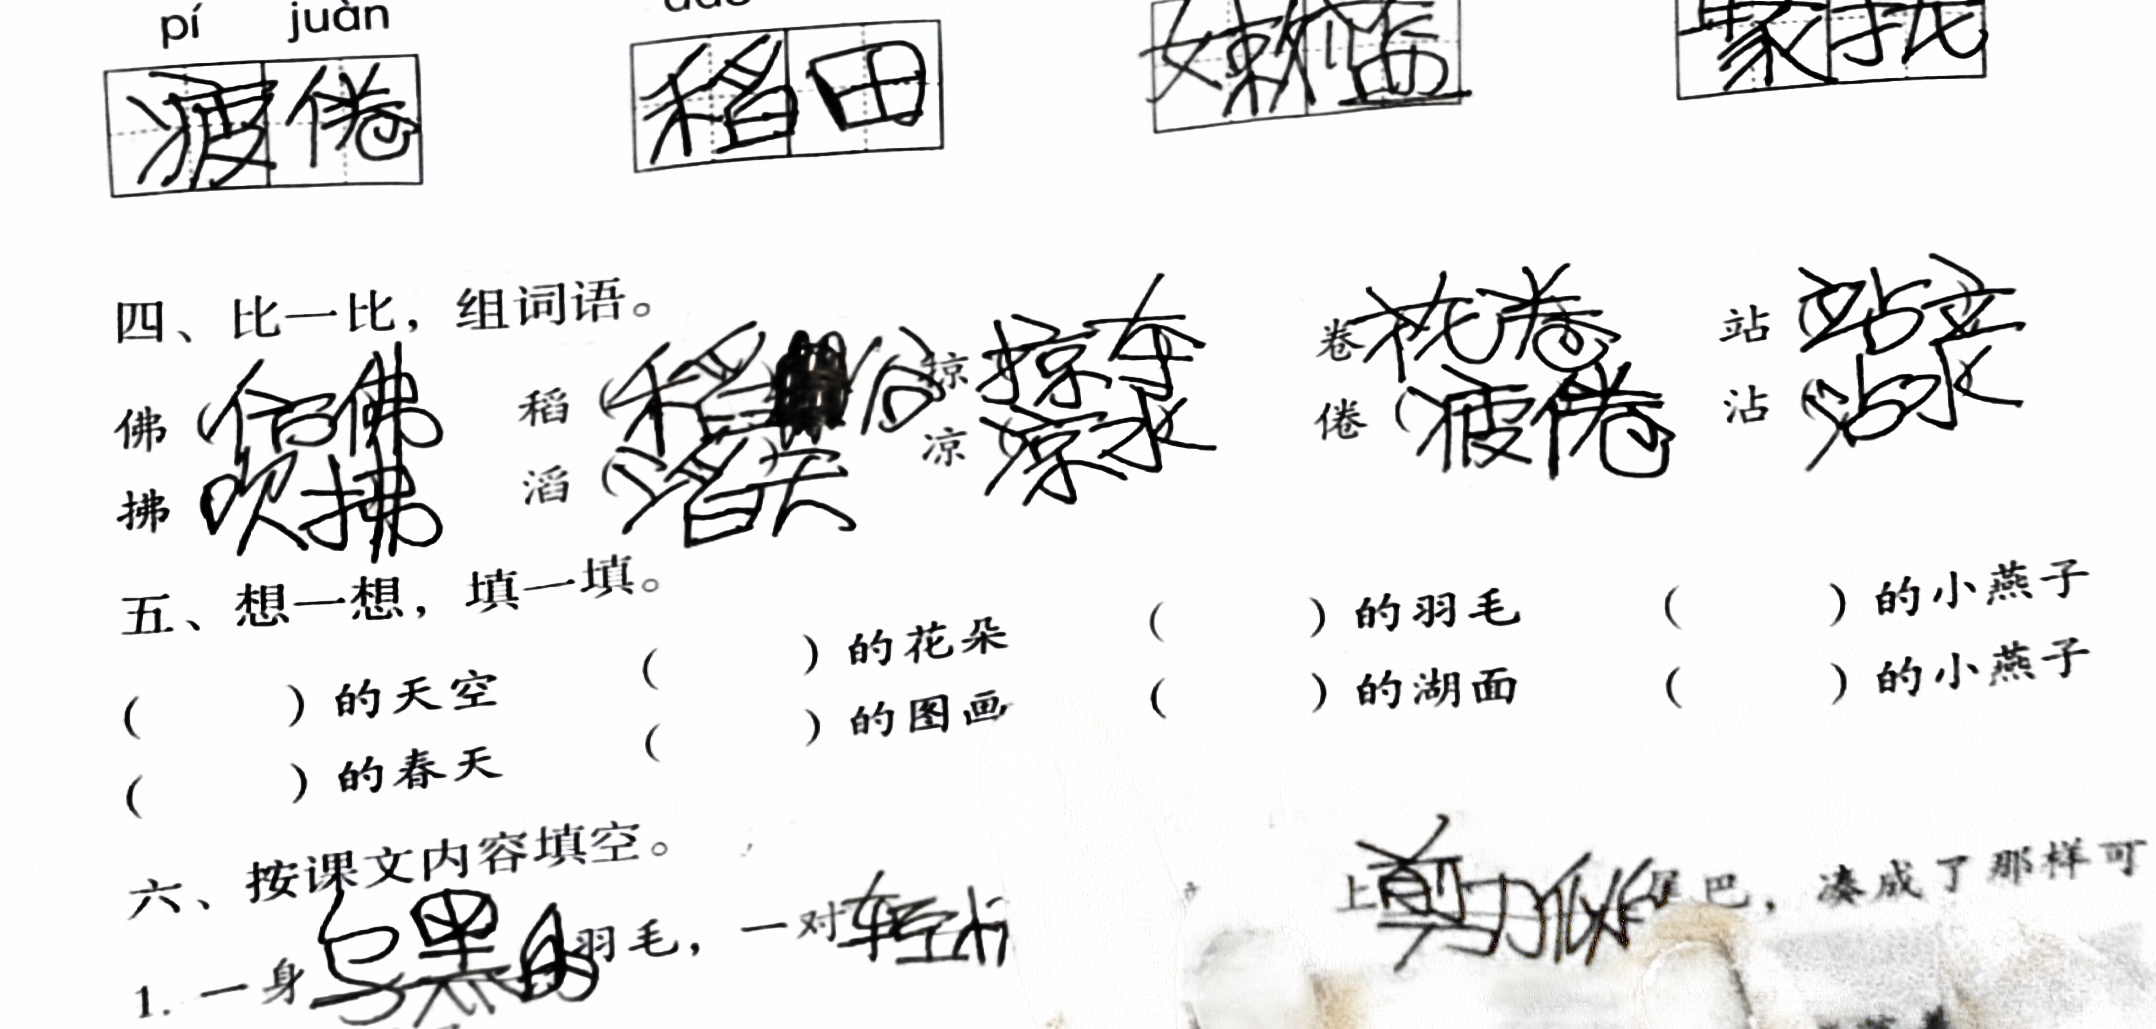 pí juàn
疲倦 稻田
四、比一比，组词语。
佛（仿佛 稻（稻谷 掠 掠夺 卷 花卷 站（站立）
拂 吹拂 滔（滔天 凉（凉水 倦（疲倦 沾（沾水
五、想一想，填一填。
（ ）的天空 （ ）的花朵 （ ）的羽毛 （ ）的小燕子
（ ）的春天 （ ）的图画 （ ）的湖面 （ ）的小燕子
六、按课文内容填空。
1. 一身乌黑的羽毛，一对轻 上剪刀似的尾巴，凑成了那样可